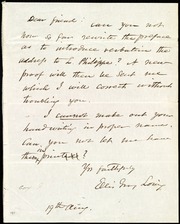 Dear Friend: Can you not
now so far rewrite the preface
as to introduce verbatim the
address to L. Philippe? A new
proof will then be sent me
which I will correct without
troubling you.
I cannot make out your
handwriting in proper names.
Can you not let me have
them printed?
Yrs faithfully
Ellis Gray Loring
19th Aug.